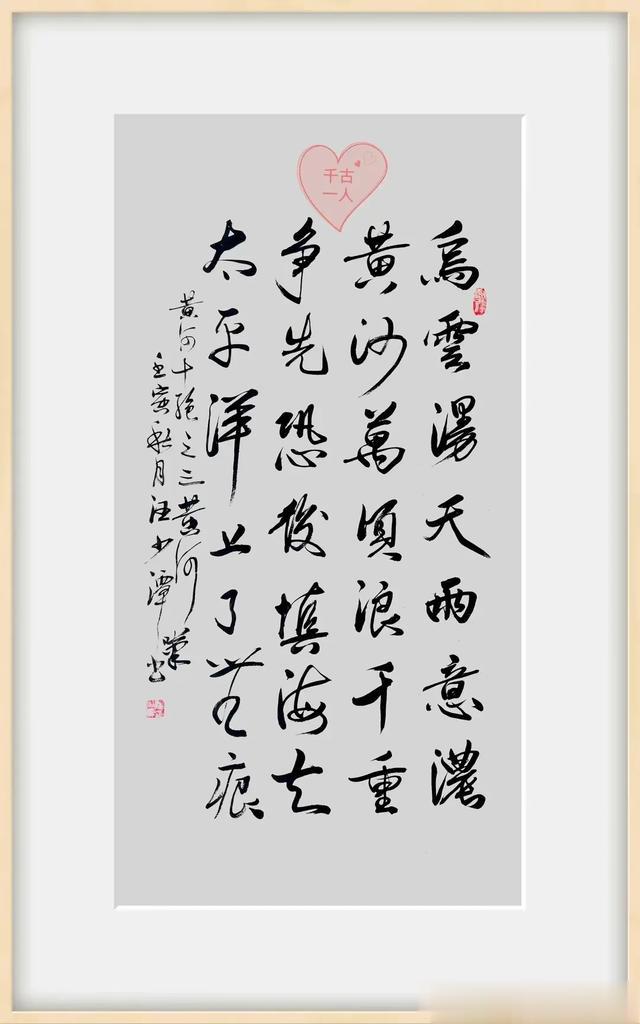 千古
一人
烏雲漫天雨意濃
黃沙萬頃浪千重
争先恐後填海去
太平洋上了無痕
黄河十絶之三黄河
壬寅秋月汪少潭書